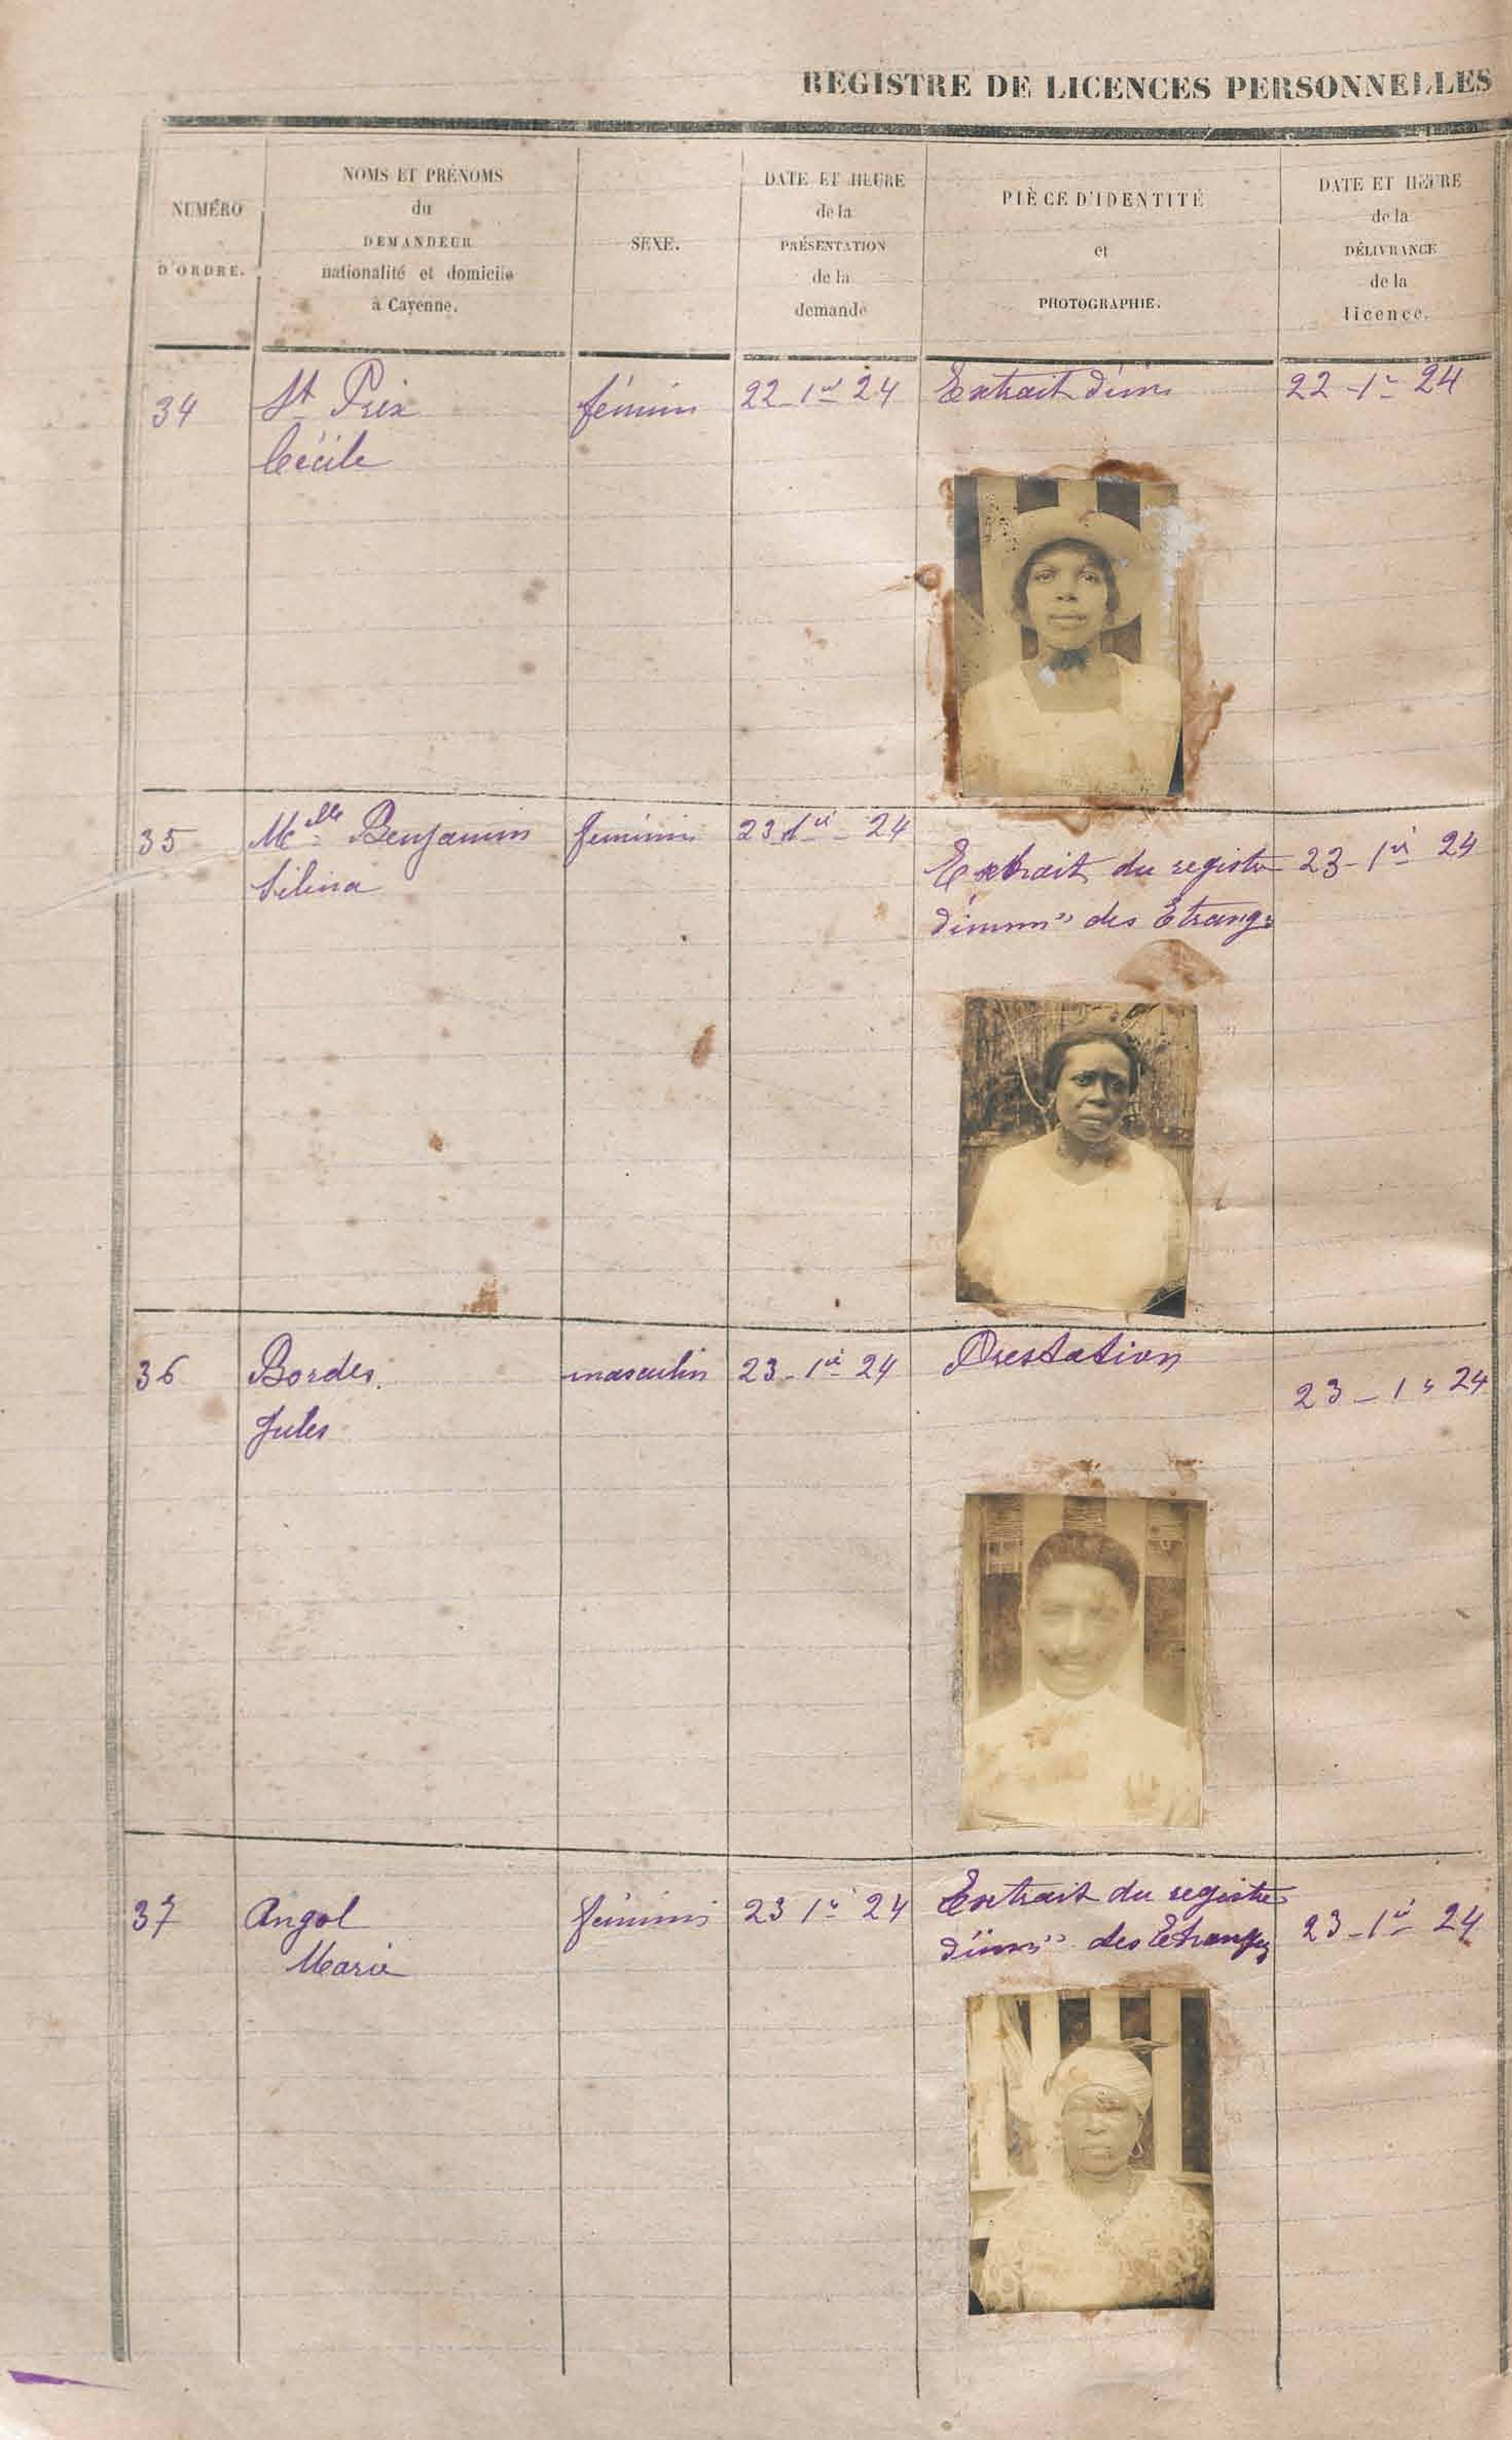 REGISTRE DE LICENCES PERSONNELLES
NUMÉRO
D'ORDRE.
NOMS ET PRÉNOMS
du
DEMANDEUR
nationalité et domicile
à Cayenne.
SEXE.
DATE ET HEURE
de la
PRÉSENTATION
de la
demande
PIÈCE D'IDENTITÉ
et
PHOTOGRAPHIE.
DATE ET HEURE
de la
DÉLIVRANCE
de la
licence.
34
St Prix
Cécile
féminin
22-1er 24
Extrait d'imm
22-1r 24
35
Melle Benjamin
féminin
23 1er - 24
Extrait du registre
d'immon des Etrang
23-1er 24
36
Bordes
Jules
masculin
23-1er 24
Prestation
23-1r 24
37
Angol
Marie
féminin
23 1er 24
Extrait du registre
d'immon des Etrangers
23-1er 24